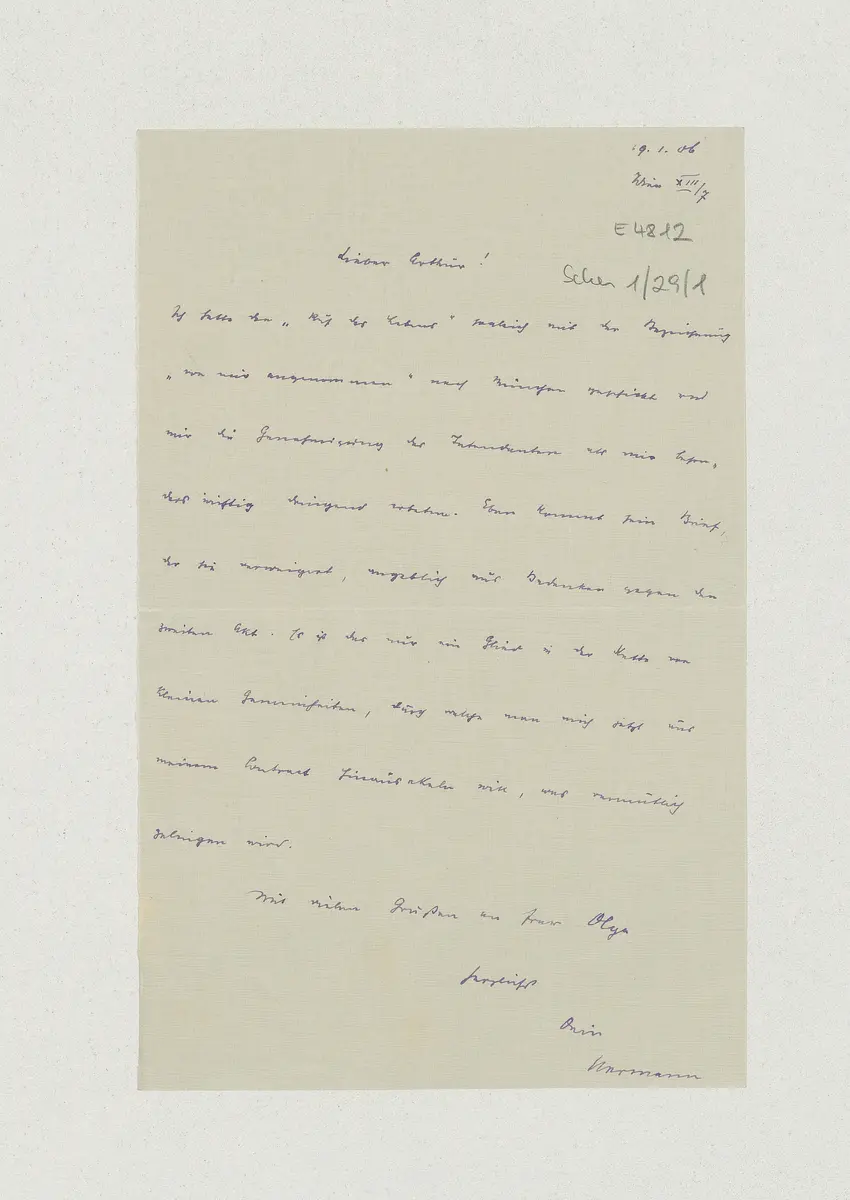 19. 1. 06
Wien XIII/7
E 4812
1/29/1
Lieber Arthur!
Ich hatte den „Ruf des Lebens“ sogleich mit der Bezeichnung
„von mir angenommen“ nach München geschickt und
mir die Genehmigung des Intendanten als mir beson-
ders wichtig dringend erbeten. Eben kommt sein Brief,
der sie verweigert, angeblich aus Bedenken gegen den
zweiten Akt. Es ist das nur ein Glied in der Kette von
kleinen Gemeinheiten, durch welche man mich jetzt aus
meinem Contract hinausekeln will, was vermutlich
gelingen wird.
Mit vielen Grüßen an Frau Olga
herzlichst
Dein
Hermann